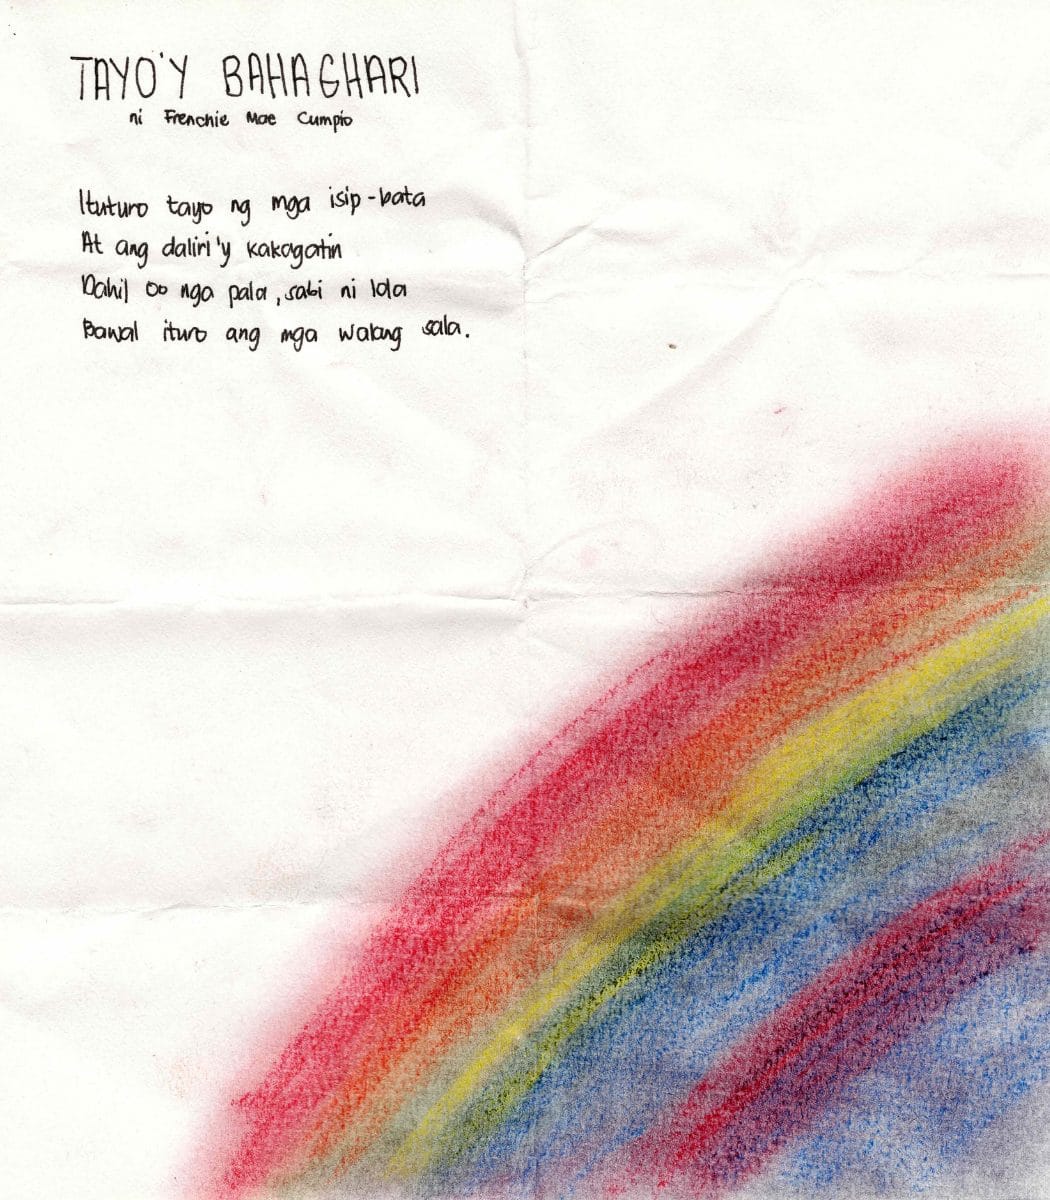 TAYO'Y BAHAGHARI
ni Frenchie Mae Cumpio
Ituturo tayo ng mga isip-bata
At ang daliri'y kakagatin
Dahil oo nga pala, sabi ni lola
Bawal ituro ang mga walang sala.